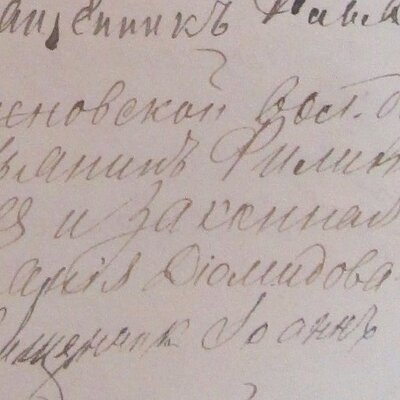 ященникъ Павл
еновской вол. д
ьянинъ Филип
ея и законная
арія Діомидова
вященник Іоаннъ